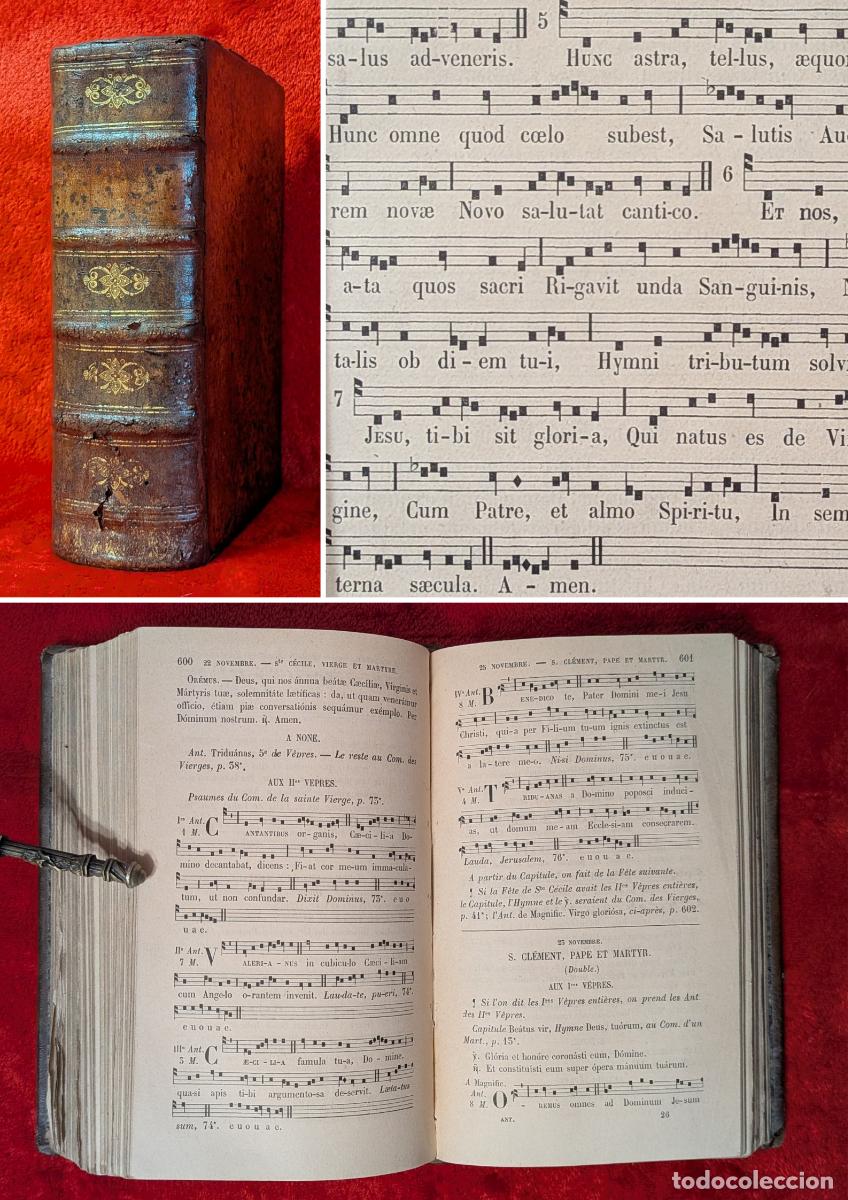 5
sa-lus ad-veneris. HUNC astra, tel-lus, æquo
Hunc omne quod cœlo subest, Sa-lutis Au
6
rem novæ Novo sa-lu-tat canti-co. ET nos,
a-ta quos sacri Ri-gavit unda San-gui-nis,
ta-lis ob di-em tu-i, Hymni tri-bu-tum solv
7
JESU, ti-bi sit glori-a, Qui natus es de Vi
gine, Cum Patre, et almo Spi-ri-tu, In sem
terna sæcula. A - men.
600 22 NOVEMBRE. — Ste CÉCILE, VIERGE ET MARTYRE.
ORÉMUS. — Deus, qui nos ánnua beátæ Cæcíliæ, Vírginis et
Mártyris tuæ, solemnitáte lætíficas : da, ut quam venerámur
officio, étiam piæ conversatiónis sequámur exémplo. Per
Dóminum nostrum. ℟. Amen.
A NONE.
Ant. Triduánas, 5e de Vêpres. — Le reste au Com. des
Vierges, p. 38*.
AUX IIes VEPRES.
Psaumes du Com. de la sainte Vierge, p. 73*.
Ire Ant.
4 M. CANTANTIBUS or-ganis, Cæ-ci-li-a Do-
mino decantabat, dicens : Fi-at cor me-um imma-cula-
tum, ut non confundar. Dixit Dominus, 73*. e u o
u a e.
IIe Ant.
7 M. VALERI-A-NUS in cubicu-lo Cæci-li-am
cum Ange-lo o-rantem invenit. Lau-da-te, pu-eri, 74*.
e u o u a e.
IIIe Ant.
5 M. CÆ-CI-LI-A famula tu-a, Do-mine,
qua-si apis ti-bi argumento-sa de-servit. Læta-tus
sum, 74*. e u o u a e.
23 NOVEMBRE. — S. CLÉMENT, PAPE ET MARTYR. 601
IVe Ant.
8 M. BENE-DICO te, Pater Domini me-i Jesu
Christi, qui-a per Fi-li-um tu-um ignis extinctus est
a la-tere me-o. Ni-si Dominus, 75*. e u o u a e.
Ve Ant.
4 M. TRIDU-ANAS a Do-mino poposci induci-
as, ut domum me-am Eccle-si-am consecrarem.
Lauda, Jerusalem, 76*. e u o u a e.
A partir du Capitule, on fait de la Fête suivante.
! Si la Fête de Ste Cécile avait les IIes Vêpres entières,
le Capitule, l'Hymne et le ℣. seraient du Com. des Vierges,
p. 41*; l'Ant. de Magnific. Virgo gloriósa, ci-après, p. 602.
23 NOVEMBRE.
S. CLÉMENT, PAPE ET MARTYR.
(Double.)
AUX Ires VÊPRES.
! Si l'on dit les Ires Vêpres entières, on prend les Ant.
des IIes Vêpres.
Capitule Beátus vir, Hymne Deus, tuórum, au Com. d'un
Mart., p. 13*.
℣. Glória et honóre coronásti eum, Dómine.
℟. Et constituísti eum super ópera mánuum tuárum.
A Magnific.
Ant.
8 M. O-REMUS omnes ad Dominum Jesum
ANT. 26
todocoleccion